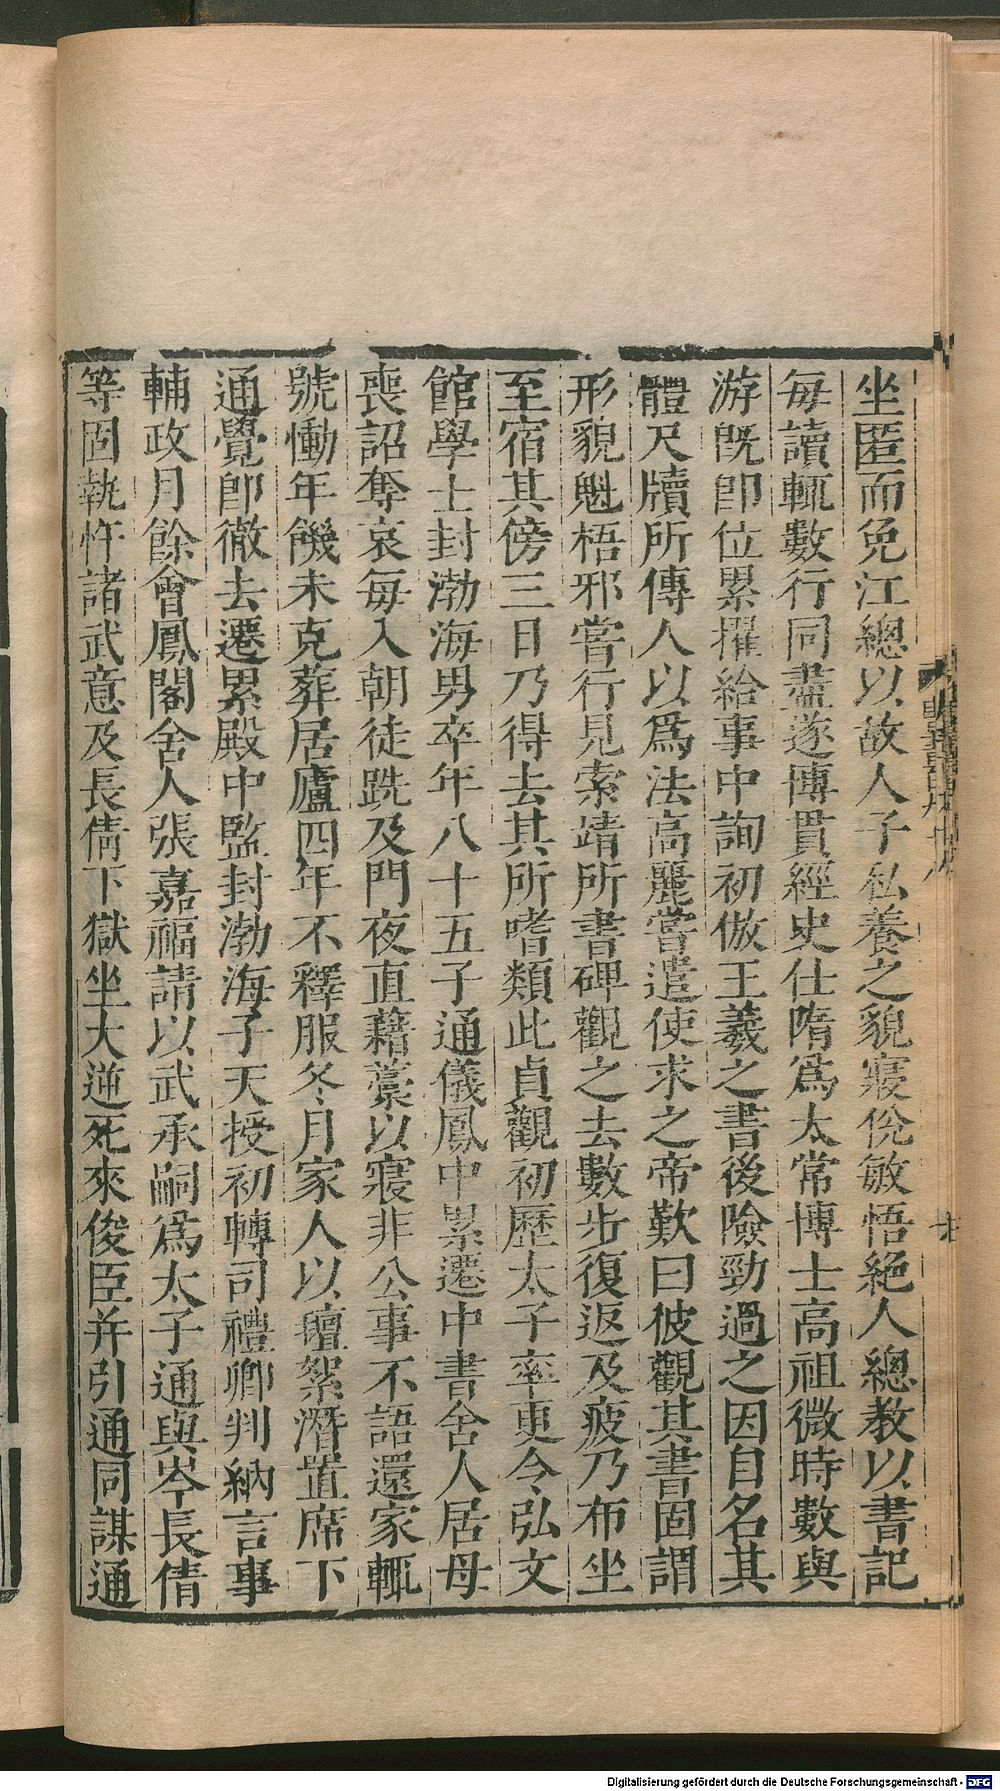 坐匿而免江總以故人子私養之貌寢侻敏悟絕人總教以書記
每讀輒數行同盡遂博貫經史仕隋爲太常博士高祖微時數與
游旣卽位累擢給事中詢初倣王羲之書後險勁過之因自名其
體尺牘所傳人以爲法高麗嘗遣使求之帝歎曰彼觀其書固謂
形貌魁梧邪嘗行見索靖所書碑觀之去數步復返及疲乃布坐
至宿其傍三日乃得去其所嗜類此貞觀初歷太子率更令弘文
館學士封渤海男卒年八十五子通儀鳳中累遷中書舍人居母
喪詔奪哀每入朝徒跣及門夜直藉藁以寢非公事不語還家輒
號慟年饑未克葬居廬四年不釋服冬月家人以氊絮潛置席下
通覺卽徹去遷累殿中監封渤海子天授初轉司禮卿判納言事
輔政月餘會鳳閣舍人張嘉福請以武承嗣爲太子通與岑長倩
等固執忤諸武意及長倩下獄坐大逆死來俊臣并引通同謀通
Digitalisierung gefördert durch die Deutsche Forschungsgemeinschaft - DFG